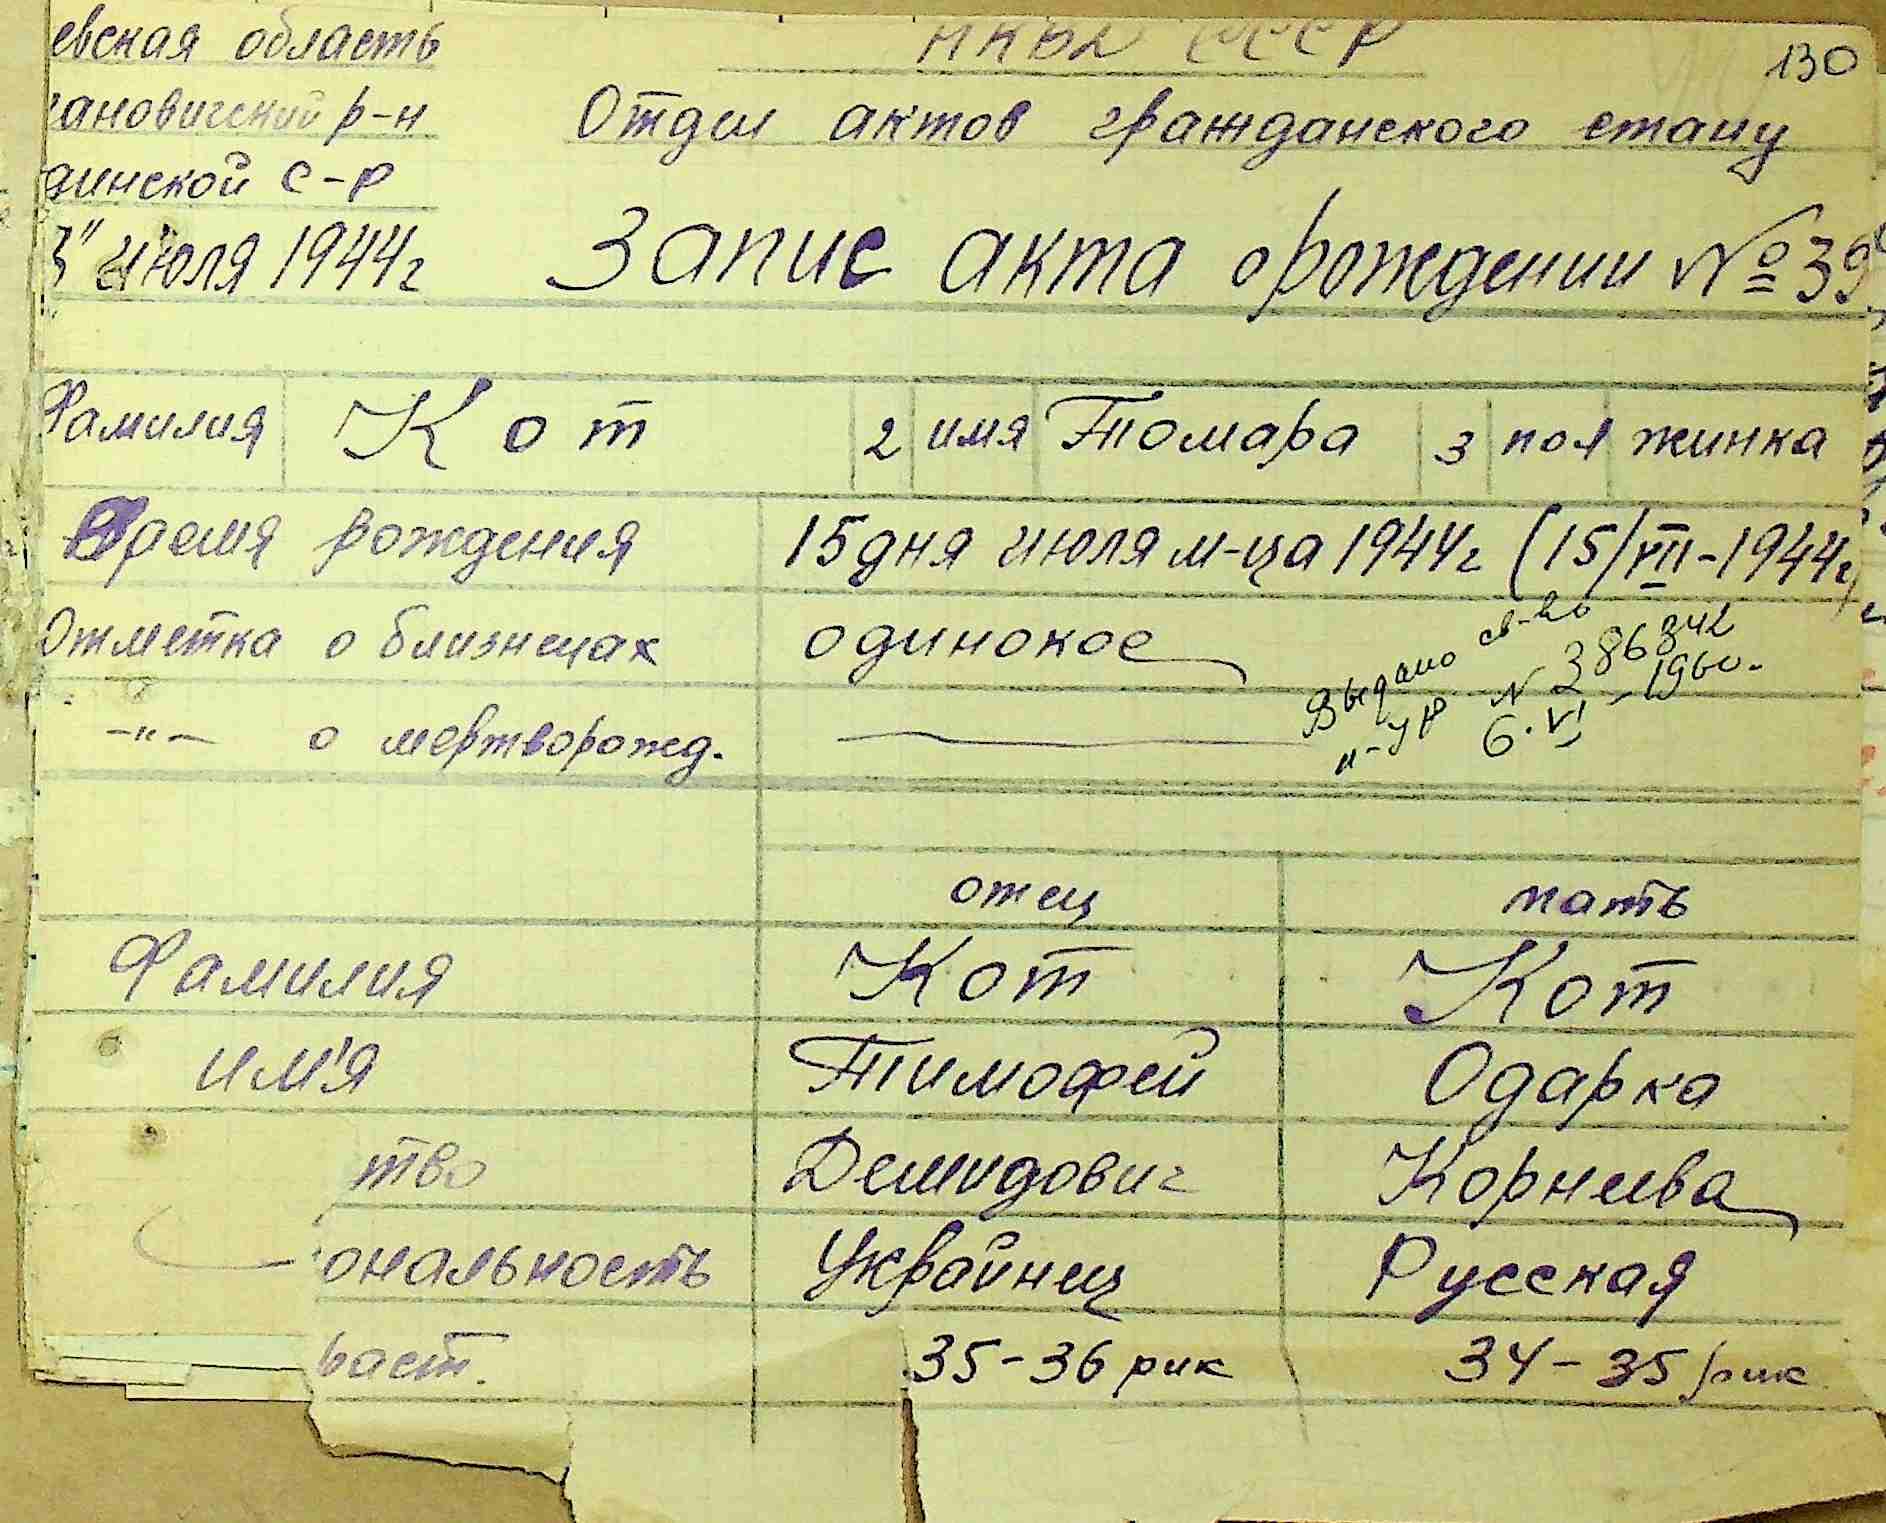 евская область
НКВД СССР
130
ановичский р-н
Отдел актов гражданского стану
динской с-р
3" июля 1944г
Запис акта о рождении № 39
Фамилия Кот 2 имя Томара 3 пол жинка
Время рождения 15 дня июля м-ца 1944г (15/VII-1944г)
Отметка о близнецах одинокое
Выдано св-во
и-УР № 386342
6.VI-1960.
-"- о мертворожд. —
отец мать
Фамилия Кот Кот
им'я Тимофей Одарка
тво Демидович Корнеева
ональность Украйнец Русская
раст. 35-36 рик 34-35 рик